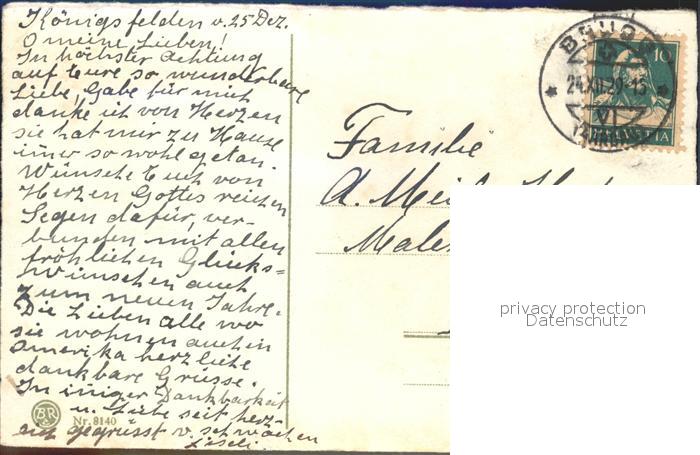 Königsfelden v. 25 Dez.
O meine Lieben!
In höchster Achtung
auf Eure so wunderbare
Liebe, Gabe für mich
danke ich von Herzen
sie hat mir zu Hause
imer so wohl getan.
Wünsche Euch von
Herzen Gottes reichen
Segen dafür, ver-
bunden mit allen
fröhlichen Glücks-
wünschen auch
zum neuen Jahre.
Die Lieben alle wo
sie wohnen auch in
Amerika herzliche
dankbare Grüsse.
In iniger Dankbarkeit
u. Liebe seit herz-
lich gegrüsst v. schwachen
Liseli.
BR
Nr. 8140
BRUGG
24.XII.29-15
VI
10
HELVETIA
Familie
A.
privacy protection
Datenschutz